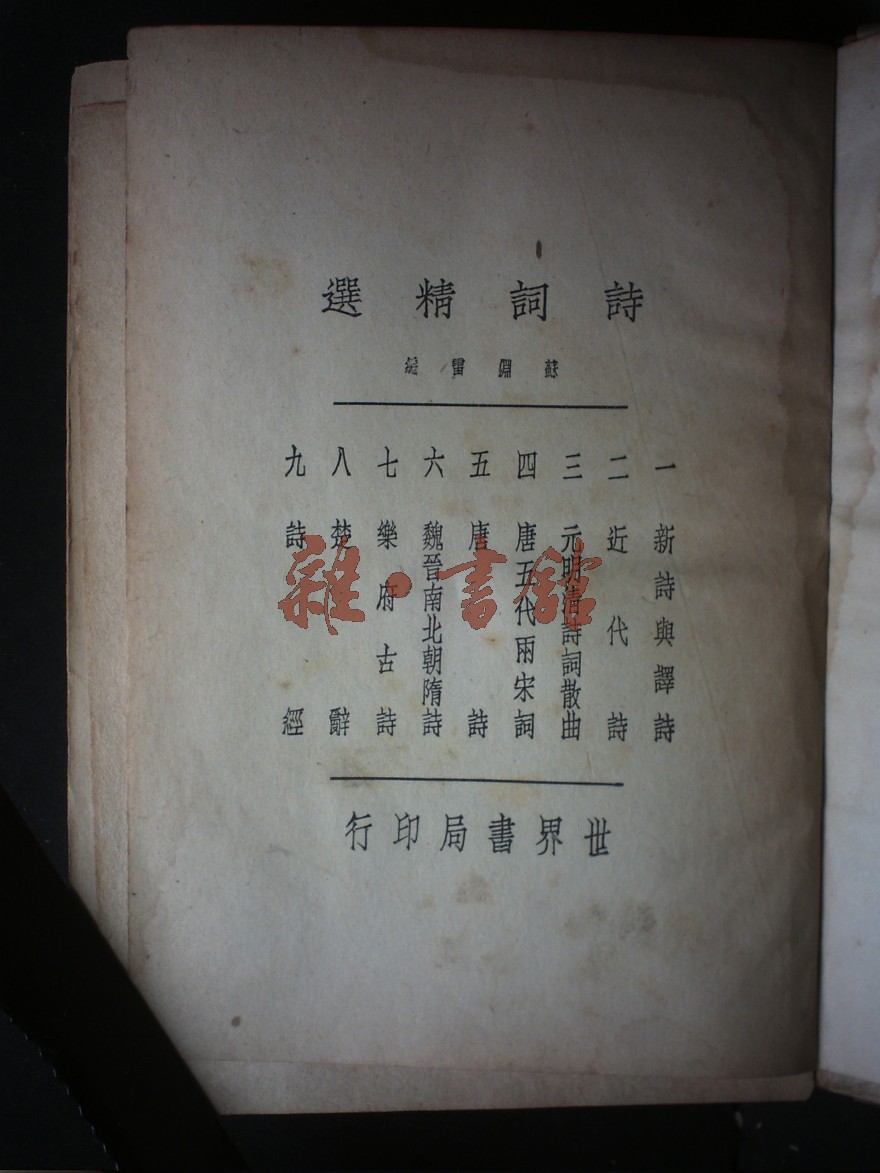 詩詞精選
蘇淵雷編
一 新詩與譯詩
二 近代詩
三 元明清詩詞散曲
四 唐五代兩宋詞
五 唐詩
六 魏晉南北朝隋詩
七 樂府古詩
八 楚辭
九 詩經
世界書局印行
雜·書館